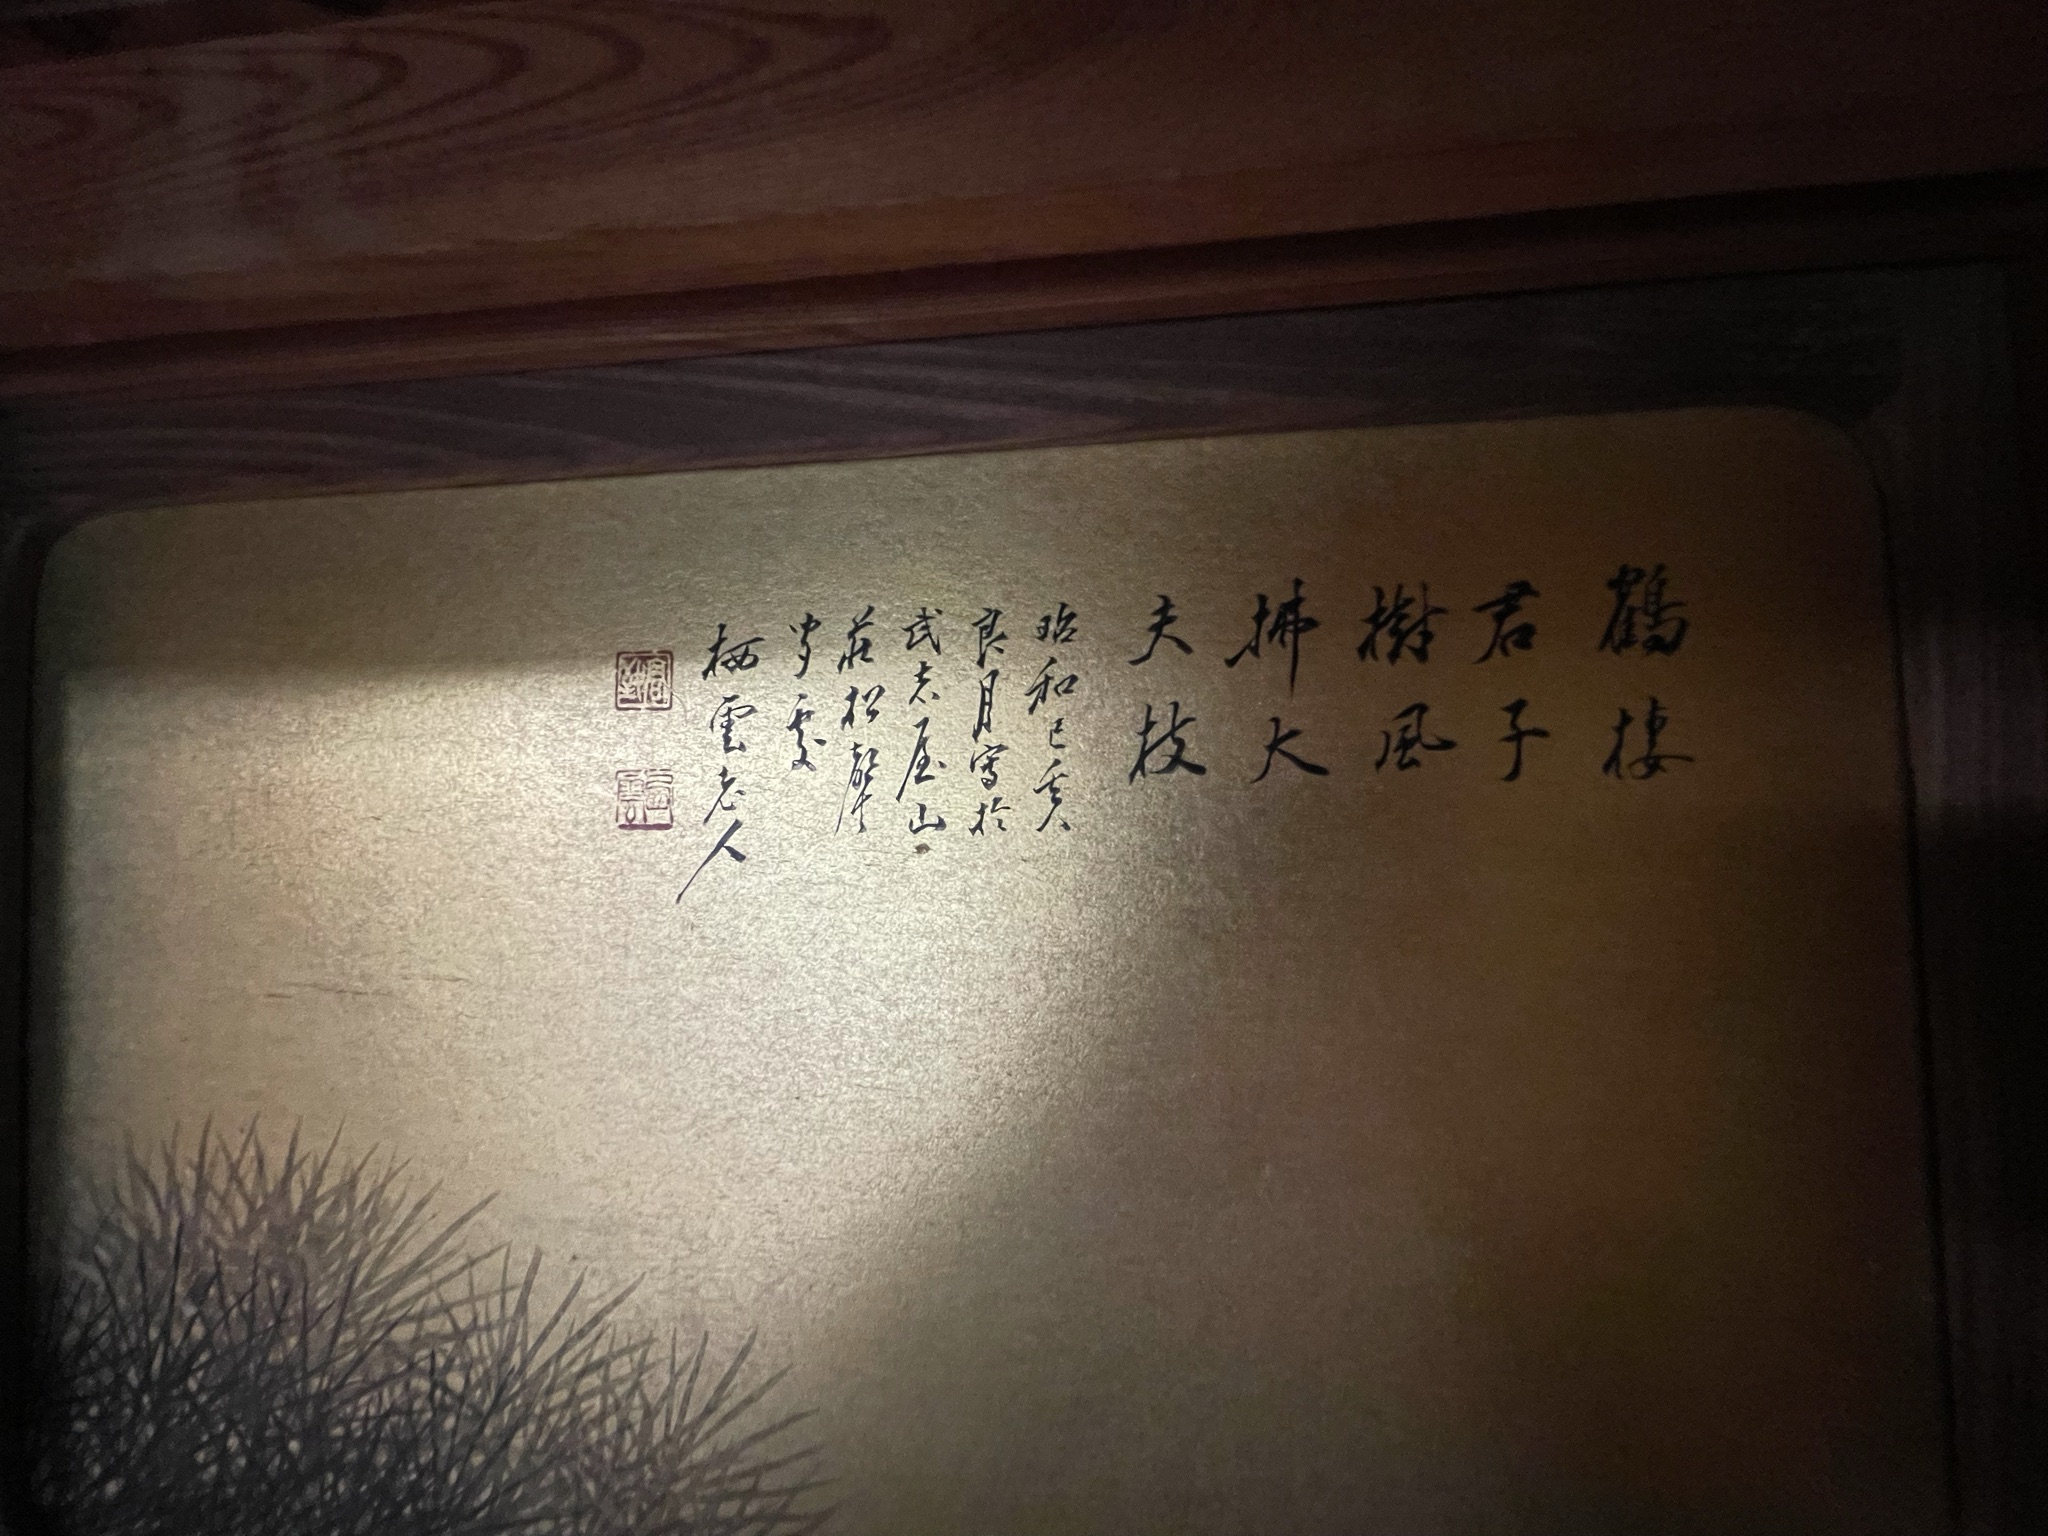 鶴棲
君子
樹風
拂大
夫枝
昭和己亥
良月寫於
武志屋山
莊松聲
多處
栖雲老人